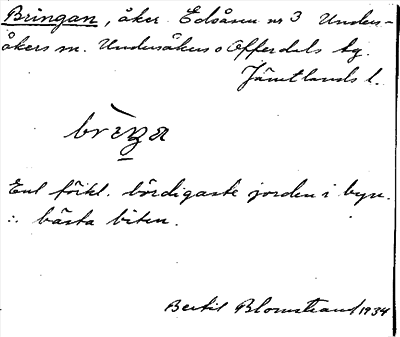 Bringan, åker. Edsåsen nr 3 Unders-
åkers sn. Undersåkers o Offerdals tg.
Jämtlands l.
Enl förkl. bördigaste jorden i byn.
:. bästa biten.
Bertil Blomstrand 1934